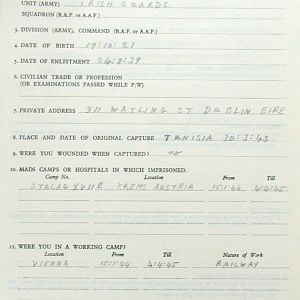 UNIT (ARMY) IRISH GUARDS
SQUADRON (R.A.F. or A.A.F.)
3. DIVISION (ARMY), COMMAND (R.A.F. or A.A.F.)
4. DATE OF BIRTH 19:10:21
5. DATE OF ENLISTMENT 24:8:39
6. CIVILIAN TRADE OR PROFESSION
(OR EXAMINATIONS PASSED WHILE P/W)
7. PRIVATE ADDRESS 311 WATLING ST DUBLIN EIRE
8. PLACE AND DATE OF ORIGINAL CAPTURE TUNISIA 30:3:43
9. WERE YOU WOUNDED WHEN CAPTURED?
10. MAIN CAMPS OR HOSPITALS IN WHICH IMPRISONED.
Camp No. Location From Till
STALAG XVIIB KREMS AUSTRIA 15:1:44 4:4:45
11. WERE YOU IN A WORKING CAMP?
Location From Till Nature of Work
VIENNA 15:1:44 4:4:45 RAILWAY